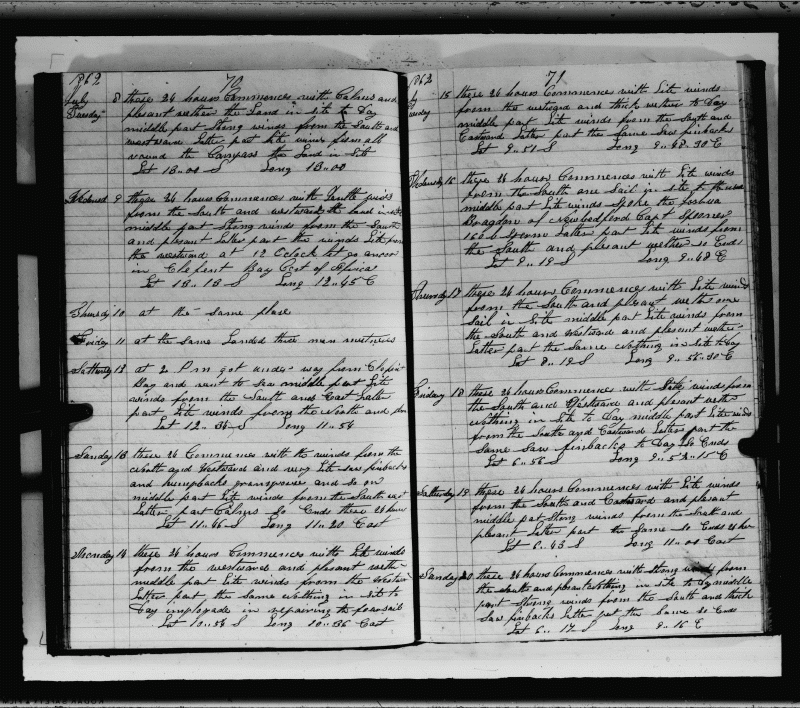 1862 70
July Tuesday 8 these 24 hours Commences with Calms and
plesant wether the Land in site to Day
middle part Strong winds from the South and
westward Latter part Lite winds from all
round the Compass the Land in Site
Lat 13..00 S Long 13..00
9 these 24 hours Commences with Gentle winds
from the South and westward the Land in site
middle part Strong winds from the South
and plesant Latter part the winds Lite from
the westward at 12 Oclock let go ancor
in Bay of Africa
Lat 13..13 S Long 12..45 E
Thursdy 10 at the same place
Friday 11 at the same Landed three men
at 2 P m got under way from
Bay and went to Sea middle part Lite
winds from the South and East Latter
part Lite winds from the North and
Lat 12..36 S Long 11..54
Sunday 13 these 24 Commences with the winds from the
North and Westward and very Lite saw finbacks
and humpbacks and so on
middle part Lite winds from the South east
Latter part Calms So Ends these 24 hours
Lat 11..46 S Long 11..20 East
14 these 24 hours Commences with Lite winds
from the westward and plesant wether
middle part Lite winds from the Wester
Latter part the same Nothing in site to
Day in repairing the foarsail
Lat 10..54 S Long 10..36 East
1862 71
15 these 24 hours Commences with Lite winds
from the westward and thick wether to Day
middle part Lite winds from the South and
Eastward Latter part the Same Saw finbacks
Lat 9..51 S Long 9..48..30 E
16 these 24 hours Commences with Lite winds
from the South one Sail in site to
middle part Lite winds Spoke the Joshua
Bragdon of Newbedford Capt Spooner
Sperm Latter part Lite winds from
the South and plesant wether so Ends
Lat 9..19 S Long 9..48 E
Thursdy 17 these 24 hours Commences with Lite winds
from the South and plesant wether one
Sail in Site middle part Lite winds from
the South and Westward and plesant wether
Latter part the Same Nothing in site to Day
Lat 8..19 S Long 9..56..30 E
Friday 18 these 24 hours Commences with Lite winds from
the South and Westward and plesant wether
Nothing in Site to Day middle part Lite winds
from the South and Eastward Latter part the
Same Saw finbacks to Day So Ends
Lat 6..56 S Long 9..52..15 E
19 these 24 hours Commences with Lite winds
from the South and Eastward and plesant
middle part Strong winds from the South and
plesant Latter part the Same so Ends 24 hor
Lat 6..43 S Long 11..00 East
Sunday 20 these 24 hours Commences with Strong winds from
the South and plesant Nothing in site to Dy middle
part Strong winds from the South and thick
Saw finbacks Latter part the Same so Ends
Lat 6..17 S Long 9..16 E